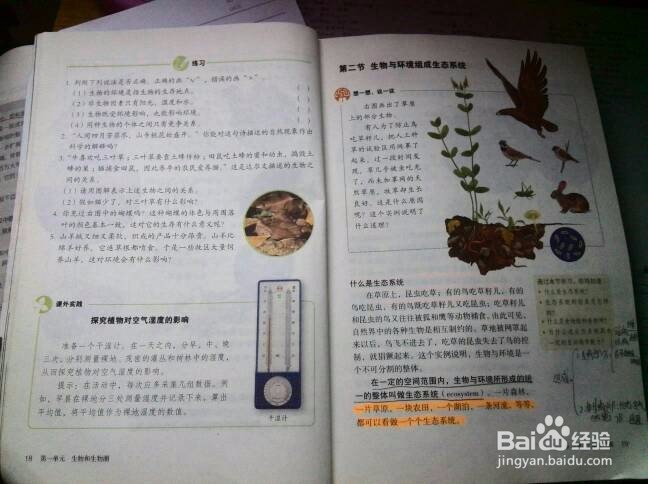 练习
1. 判断下列说法是否正确。正确的画“√”，错误的画“×”。
(1)生物的环境是指生物的生存地点。 ( )
(2)非生物因素只有阳光、温度和水。 ( )
(3)生物既受环境影响，也能影响环境。 ( )
(4)同种生物的个体之间只有竞争关系。 ( )
2. “人间四月芳菲尽，山寺桃花始盛开。”你能对这句诗描述的自然现象作出
科学的解释吗？
3. “牛喜欢吃三叶草；三叶草要靠土蜂传粉；田鼠吃土蜂的蜜和幼虫，捣毁土
蜂的巢；猫捕食田鼠，因此养牛的农民爱养猫。”这是达尔文描述的生物之
间的关系。
(1)请用图解表示上述生物之间的关系。
(2)假如猫少了，对三叶草有什么影响？
4. 你见过右图中的蝴蝶吗？这种蝴蝶的体色与周围落
叶的颜色基本一致，这对它的生存有什么意义呢？
5. 山羊绒又细又柔软，织成的产品十分昂贵。山羊比
绵羊好养，它连草根都啃食。于是一些牧区大量饲
养山羊。这对环境会有什么影响？
课外实践
探究植物对空气湿度的影响
准备一个干湿计，在一天之内，分早、中、晚
三次，分别测量裸地、茂密的灌丛和树林中的湿度，
从而探究植物对空气湿度的影响。
提示：在活动中，每次应多采集几组数值。例
如，早晨在裸地分三处测量湿度并记录下来，算出
平均值，将平均值作为裸地湿度的数值。
干湿计
18 第一单元 生物和生物圈
第二节 生物与环境组成生态系统
想一想，议一议
右图画出了草原
上的部分生物。
有人为了防止鸟
吃草籽儿，把人工种
草的试验区用网罩了
起来，过一段时间发
现，草几乎被虫吃光
了，而未加罩网的天
然草原，牧草却生长
良好。这是什么原因
呢？这个实例说明了
什么道理？
什么是生态系统
在草原上，昆虫吃草；有的鸟吃草籽儿，有的
鸟吃昆虫，有的鸟既吃草籽儿又吃昆虫；吃草籽儿
和昆虫的鸟又往往被狐和鹰等动物捕食。由此可见，
自然界中的各种生物是相互制约的。草地被网罩起
来以后，鸟飞不进去了，吃草的昆虫失去了鸟的控
制，就猖獗起来。这个实例说明，生物与环境是一
个不可分割的整体。
在一定的空间范围内，生物与环境所形成的统
一的整体叫做生态系统（ecosystem）。一片森林，
一片草原，一块农田，一个湖泊，一条河流，等等，
都可以看做一个个生态系统。
Baidu经验
jingyan.baidu.com